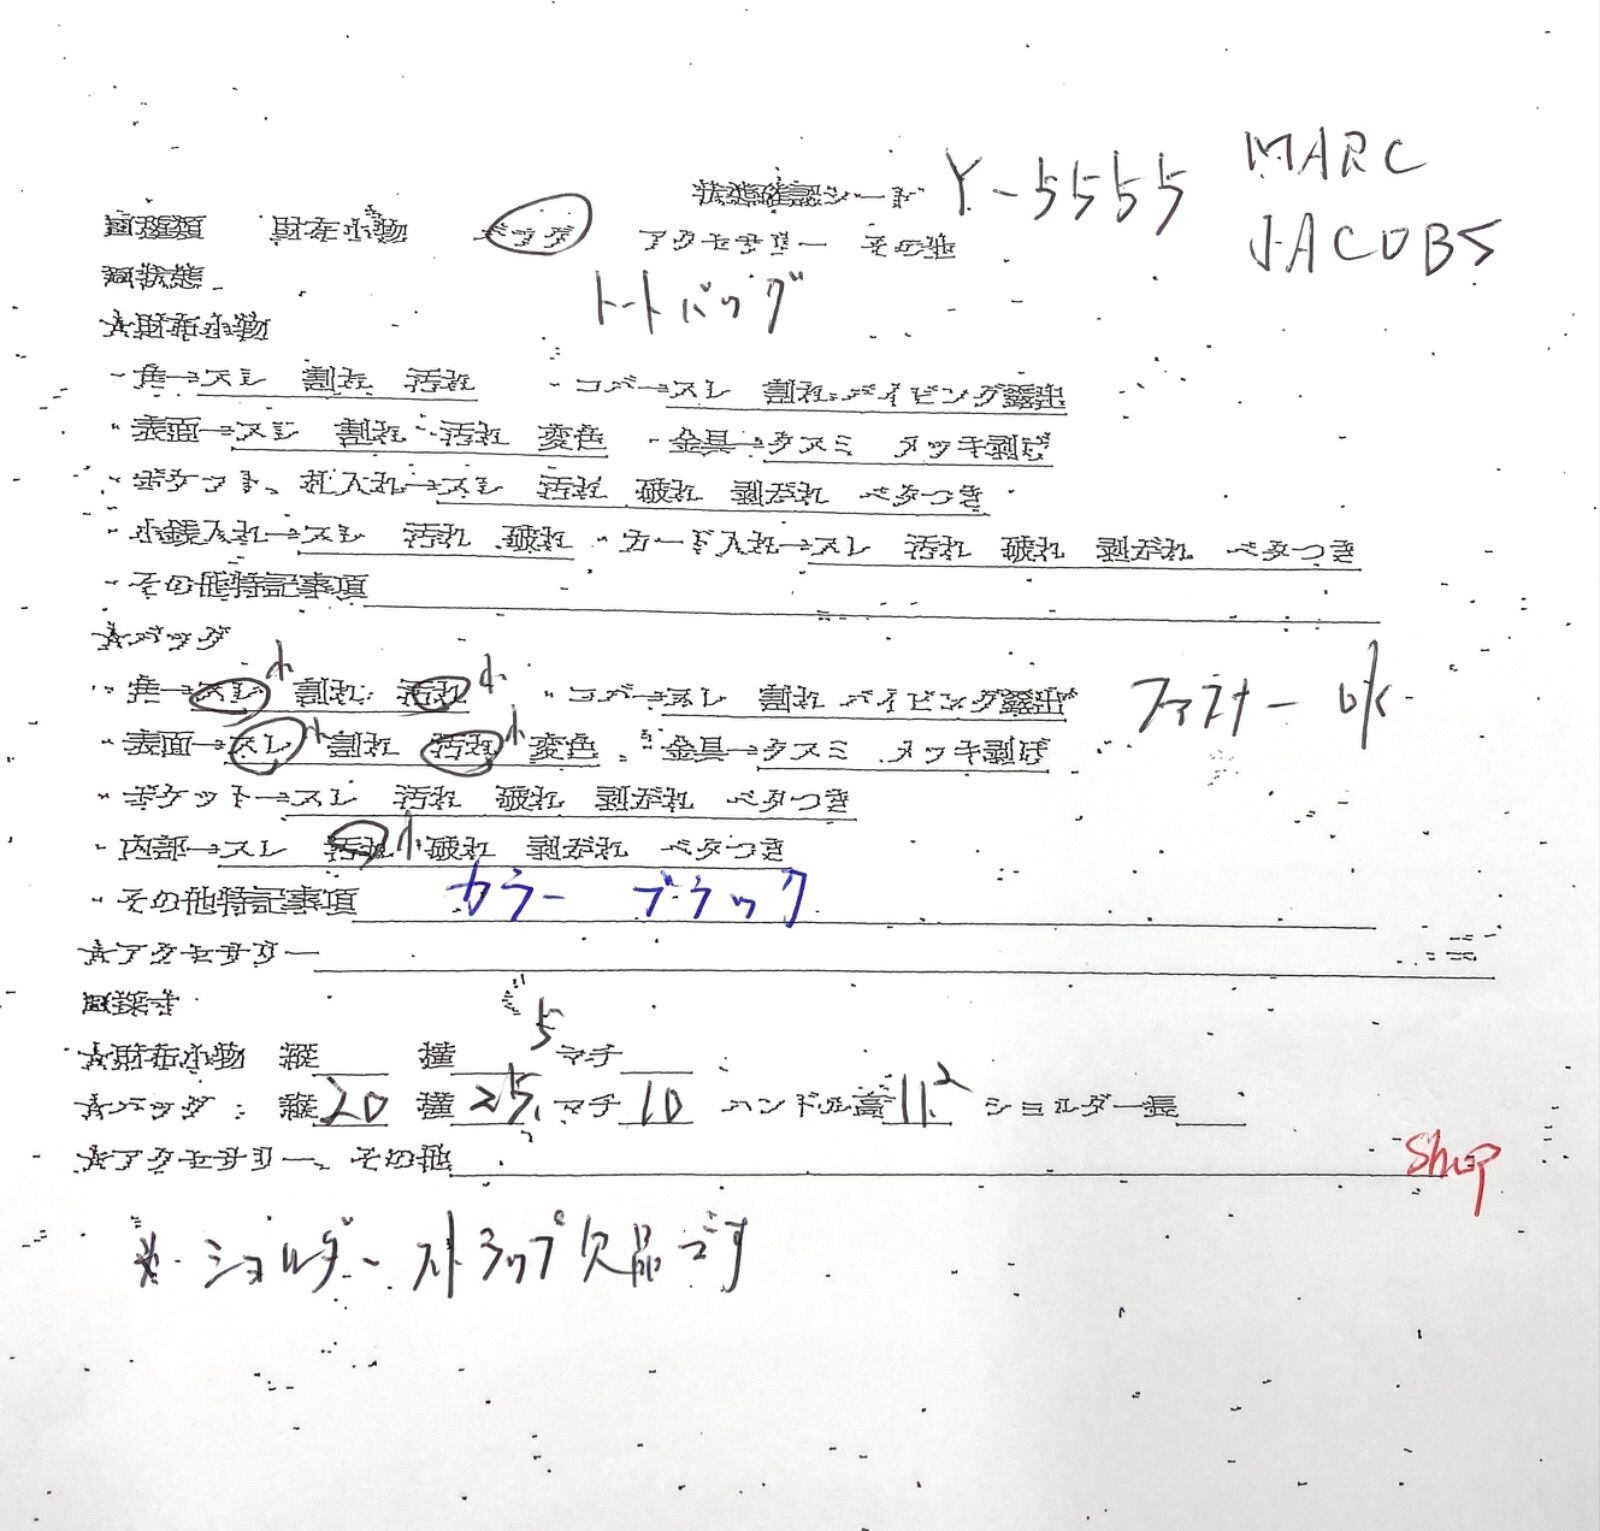 状態確認シート Y-5555 MARC JACOBS
回種類 財布小物 バッグ アクセサリー その他
回状態 トートバッグ
☆財布小物
・角→スレ 割れ 汚れ ・コバ→スレ 割れ パイピング露出
・表面→スレ 割れ 汚れ 変色 ・金具→クスミ メッキ剥げ
・ポケット、札入れ→スレ 汚れ 破れ 剥がれ ベタつき
・小銭入れ→スレ 汚れ 破れ ・カード入れ→スレ 汚れ 破れ 剥がれ ベタつき
・その他特記事項
☆バッグ
・角→スレ小 割れ 汚れ小 ・コバ→スレ 割れ パイピング露出 ファスナー ok
・表面→スレ小 割れ 汚れ小 変色 ・金具→クスミ メッキ剥げ
・ポケット→スレ 汚れ 破れ 剥がれ ベタつき
・内部→スレ 汚れ小 破れ 剥がれ ベタつき
・その他特記事項 カラー ブラック
☆アクセサリー
回採寸
☆財布小物 縦 横 マチ
☆バッグ:縦20 横25.5 マチ10 ハンドル高11.2 ショルダー長
☆アクセサリー、その他
Shop
※ショルダーストラップ欠品です